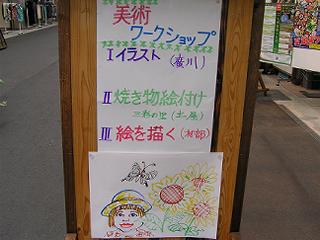 美術
ワークショップ
Ⅰ イラスト(廣川)
Ⅱ 焼き物絵付け
三彩の里(土屋)
Ⅲ 絵を描く